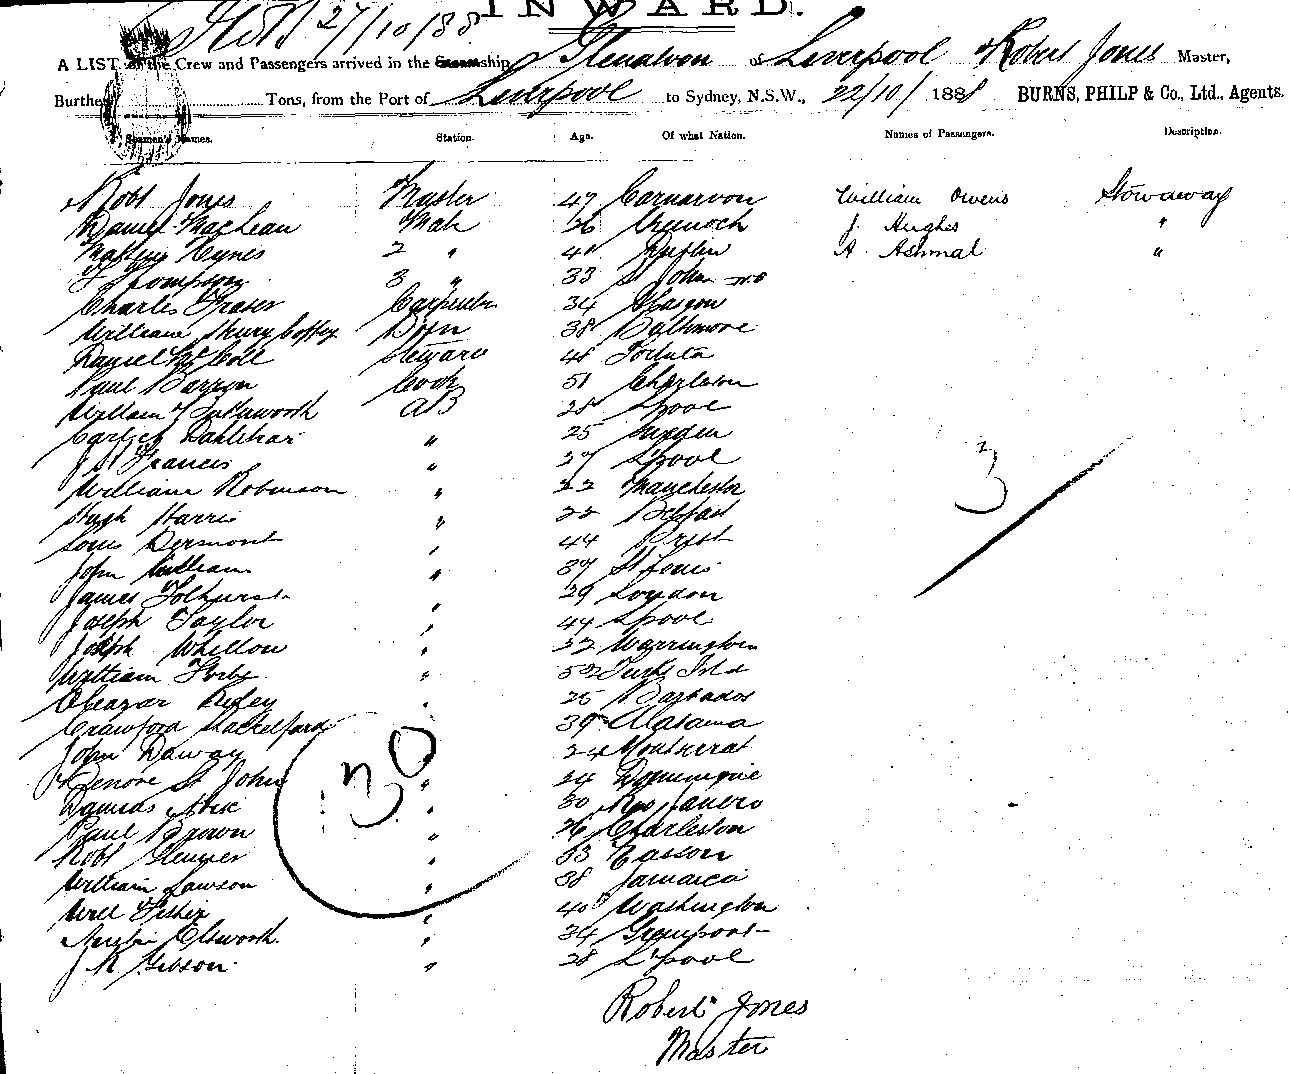 INWARD.
27/10/88
A LIST of the Crew and Passengers arrived in the Steamship Glenalvon of Liverpool Robert Jones Master,
Burthen Tons, from the Port of Liverpool to Sydney, N.S.W., 22/10/1888 BURNS, PHILP & Co., Ltd., Agents.
Seamen's Names. Station. Age. Of what Nation. Names of Passengers. Description.
Robt Jones Master 47 Carnarvon William Owens Stowaway
Daniel MacLean Mate 26 Greenock J. Hughes "
Hynes 2 " 41 Dublin A Ashmal "
Thompson 3 " 33 St John NB
Charles Fraser Carpenter 34 Glasgow
William Henry Coffey Bosn 38 Baltimore
Daniel McColl Steward 48
Paul Barron Cook 51 Charleston
William AB 28 L'pool
" 25 Sweden
J St Francis " 27 L'pool
William Robinson " 22 Manchester
Hugh Harris " 22 Belfast
Louis Dermont " 44 Brest
John William " 37 St Louis
James Tolhurst " 29 London
Joseph Taylor " 44 L'pool
Joseph Whellow " 22 Warrington
William Forbes " 52 Turks Isld
Eleazar " 25 Barbados
Crawford Shackelford 39 Alabama
John 24 Montserrat
St John " 24 Dominique
" 30 Rio Janeiro
Paul Brown " 26 Charleston
Robt " 33 Nassau
William Lawson " 38 Jamaica
Will Fisher " 40 Washington
Elsworth " 34 Greenport
J R Gibson " 28 L'pool
30
3
Robert Jones
Master